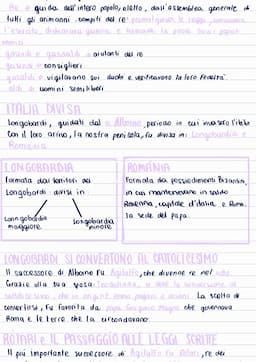 Re è guida dell'intero popolo, eletto, dall'assemblea generale di
tutti gli arimanni, compiti del re: promulgava le leggi,
gasindi e gastaldi = aiutanti del re
gasindi = consiglieri
gastaldi = vigilavano sui duchi e verificavano la loro fedeltà.
aldi = uomini semiliberi
ITALIA DIVISA
Longobardi, guidati dal re Alboino, periodo in cui invasero l'Italia
Con il loro arrivo, la nostra penisola, fu divisa in: Longobardia e
Romània
LONGOBARDIA
Formata dai territori dei
Longobardi divisi in:
Longobardia
maggiore
Longobardia
minore
ROMÀNIA
Formata dai possedimenti Bizantini,
in cui mantenevano in saldo
Ravenna, capitale d'Italia, e Roma,
la sede del papa.
LONGOBARDI SI CONVERTONO AL CATTOLICESIMO
Il successore di Alboino fu Agilulfo, che divenne re nel
Grazie alla sua sposa: Teodolinda, si deve la conversione al
cattolicesimo, che in origine erano pagani e ariani. La scelta di
convertirsi, fu favorita da papa Gregorio Magno che governava
Roma e le terre che la circondavano.
ROTARI E IL PASSAGGIO ALLE LEGGI SCRITTE
Il più importante successore di Agilulfo fu Rotari, re dei